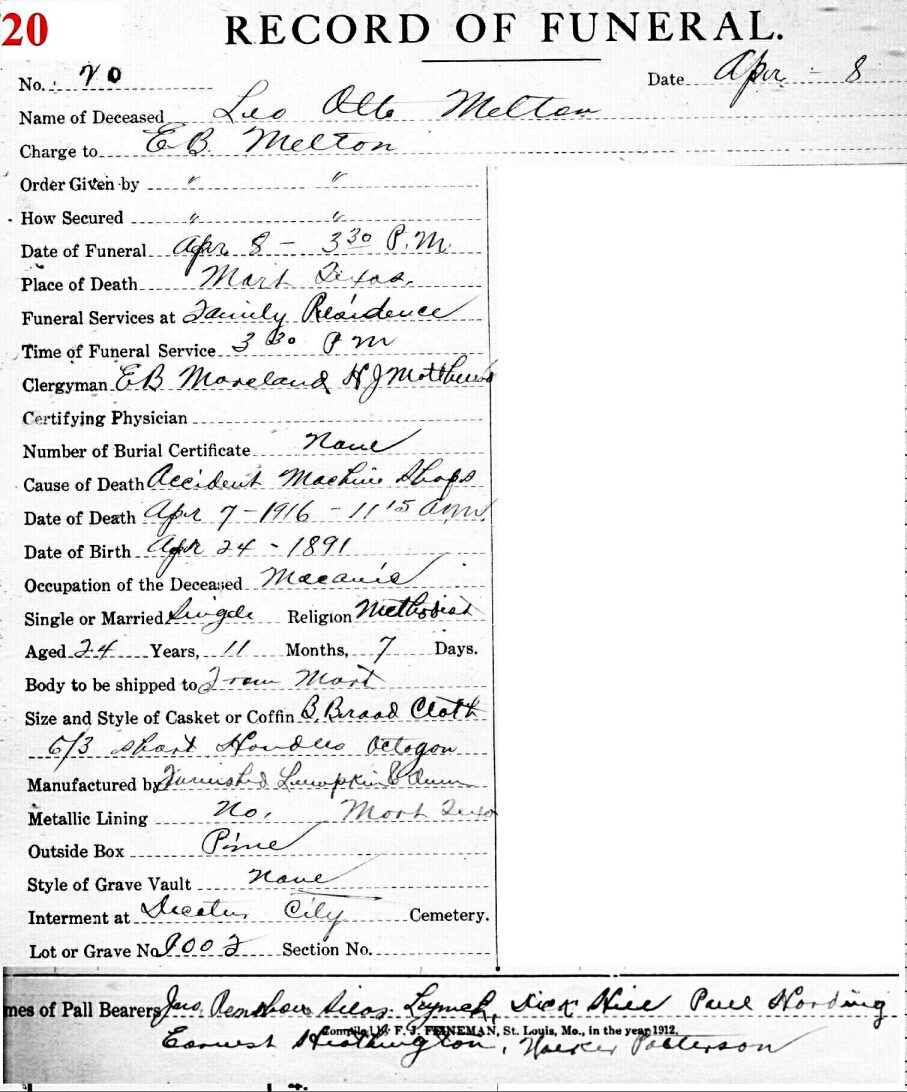 20
RECORD OF FUNERAL.
No. 20 Date Apr - 8
Name of Deceased Leo Otto Melton
Charge to E B. Melton
Order Given by " "
How Secured " "
Date of Funeral Apr 8 - 3 30 P.M.
Place of Death Mart Texas.
Funeral Services at Family Residence
Time of Funeral Service 3 30 P M
Clergyman E B Moreland H J Matthews
Certifying Physician
Number of Burial Certificate None
Cause of Death Accident Machine Shops
Date of Death Apr 7 - 1916 - 11 15 am.
Date of Birth Apr 24 - 1891
Occupation of the Deceased Macanic
Single or Married Single Religion Methodist
Aged 24 Years, 11 Months, 7 Days.
Body to be shipped to From Mart
Size and Style of Casket or Coffin B. Broad Cloth
6/3 short Handles Octogon
Manufactured by Furnished Lumpkin &
Metallic Lining No. Mart Texas
Outside Box Pine
Style of Grave Vault None
Interment at Decatur City Cemetery.
Lot or Grave No. Section No.
mes of Pall Bearers Jno. Renshaw Silas Lynch, Dick Hill Paul Harding
Compiled by F. J. FEINEMAN, St. Louis, Mo., in the year 1912.
Earnest Heathington, Walker Patterson